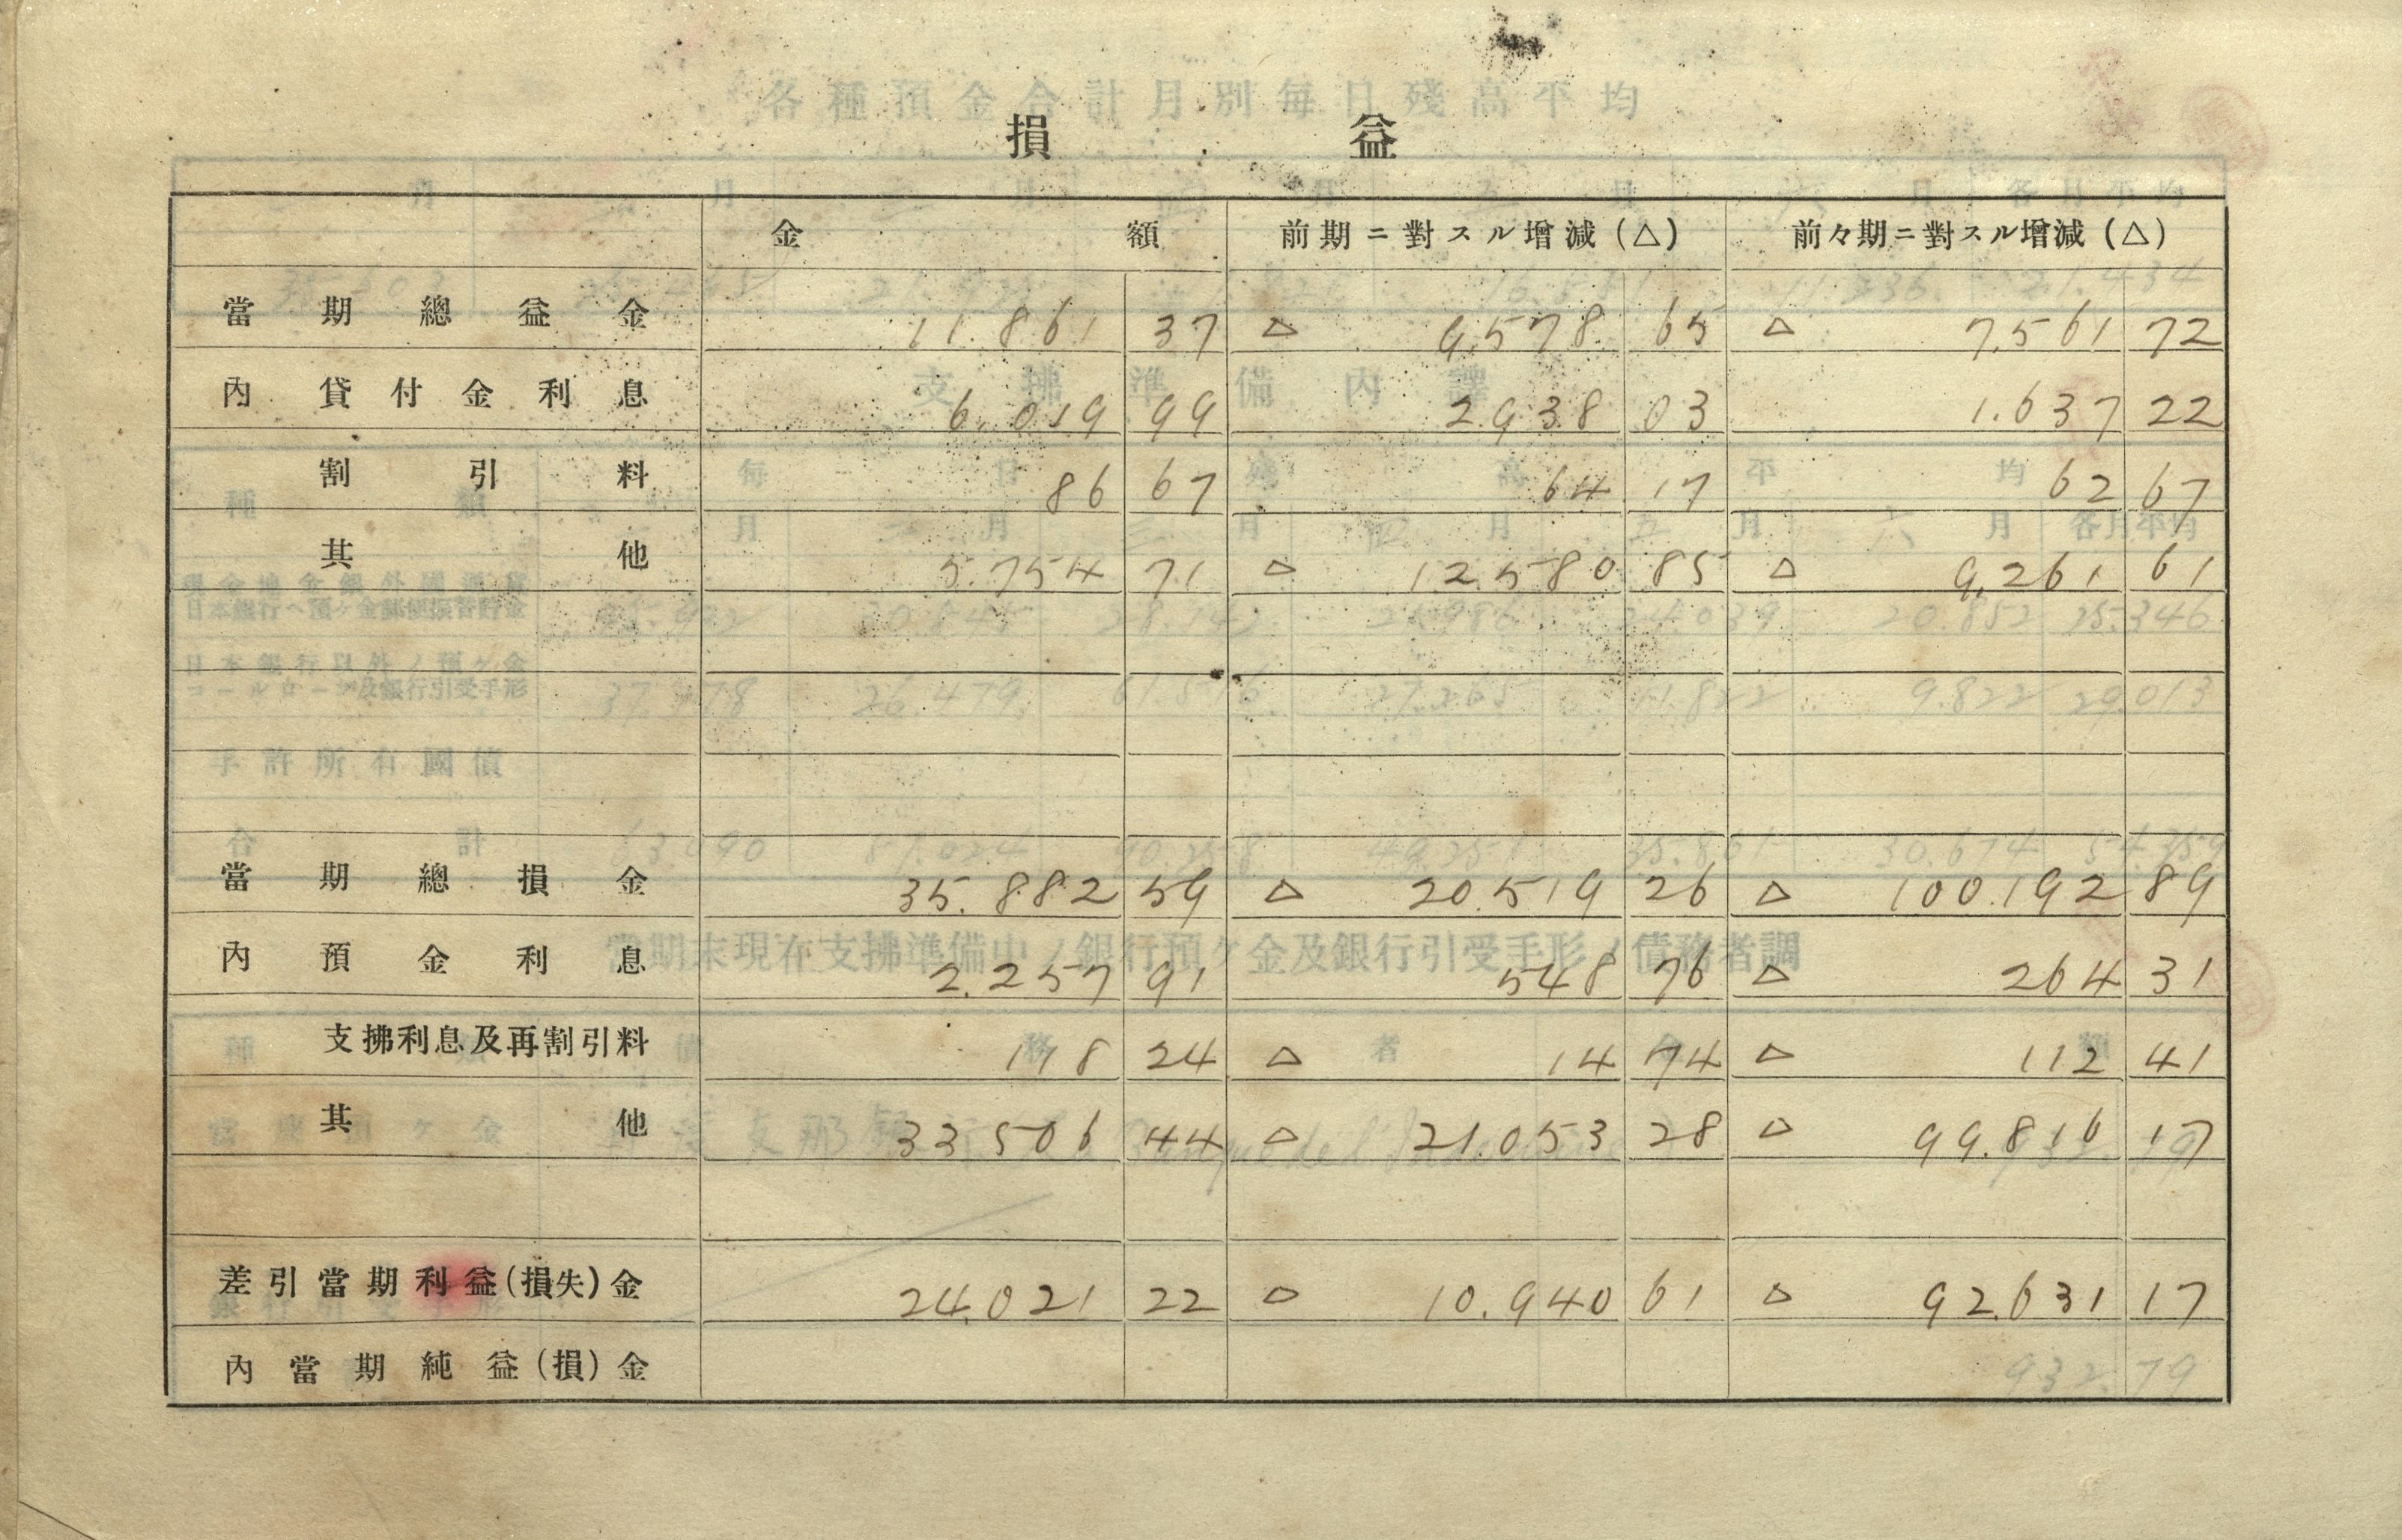 損益
金額 前期ニ對スル增減(△) 前々期ニ對スル增減(△)
當期總益金 11.861 37 △ 9.578 65 △ 7.561 72
內 貸付金利息 6.019 99 2.938 03 1.637 22
割引料 86 67 64 17 62 67
其他 5.754 71 △ 12.580 85 △ 9.261 61
當期總損金 35.882 59 △ 20.519 26 △ 100.192 89
內 預金利息 2.257 91 548 76 △ 264 31
支拂利息及再割引料 118 24 △ 14 74 △ 112 41
其他 33 506 44 △ 21.053 28 △ 99.816 17
差引當期利益(損失)金 24.021 22 △ 10.940 61 △ 92.631 17
內當期純益(損)金